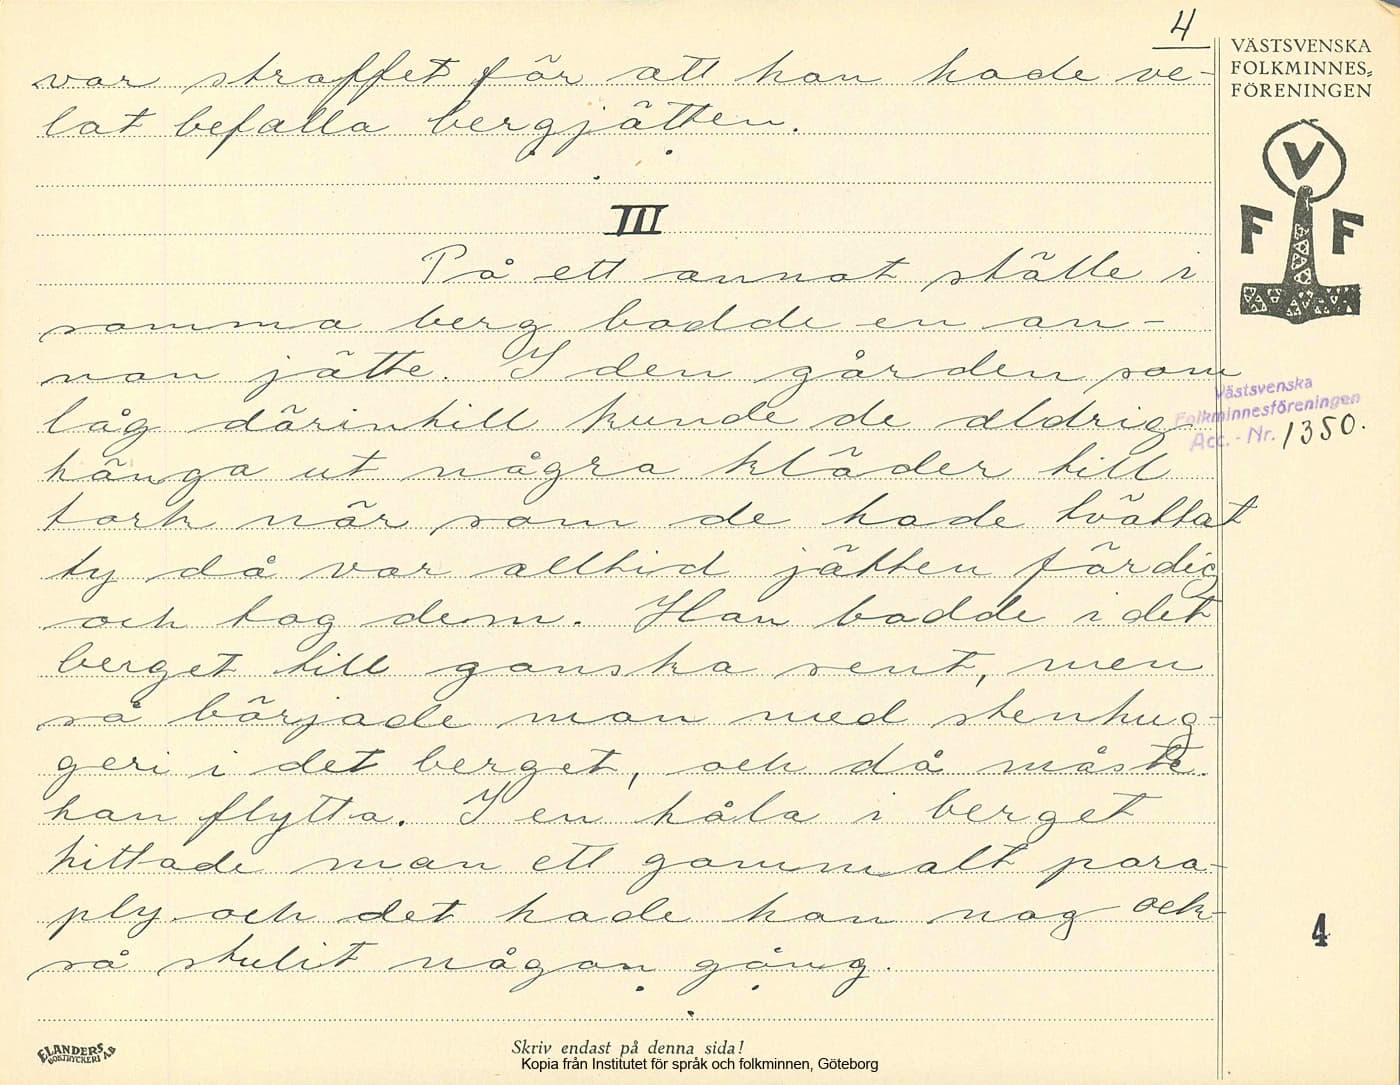 4
var straffet för att han hade ve-
lat befalla bergjätten.
III
På ett annat ställe i
samma berg bodde en an-
nan jätte. I den gården som
låg därintill kunde de aldrig
hänga ut några kläder till
tork när som de hade tvättat
ty då var alltid jätten färdig
och tog dem. Han bodde i det
berget till ganska sent, men
så började man med stenhug-
geri i det berget, och då måste
han flytta. I en håla i berget
hittade man ett gammalt para-
ply och det hade han nog ock-
så stulit någon gång.
VÄSTSVENSKA
FOLKMINNES-
FÖRENINGEN
V
F F
Västsvenska
Folkminnesföreningen
Acc. - Nr. 1350.
4
ELANDERS
BOKTRYCKERI A.B
Skriv endast på denna sida!
Kopia från Institutet för språk och folkminnen, Göteborg